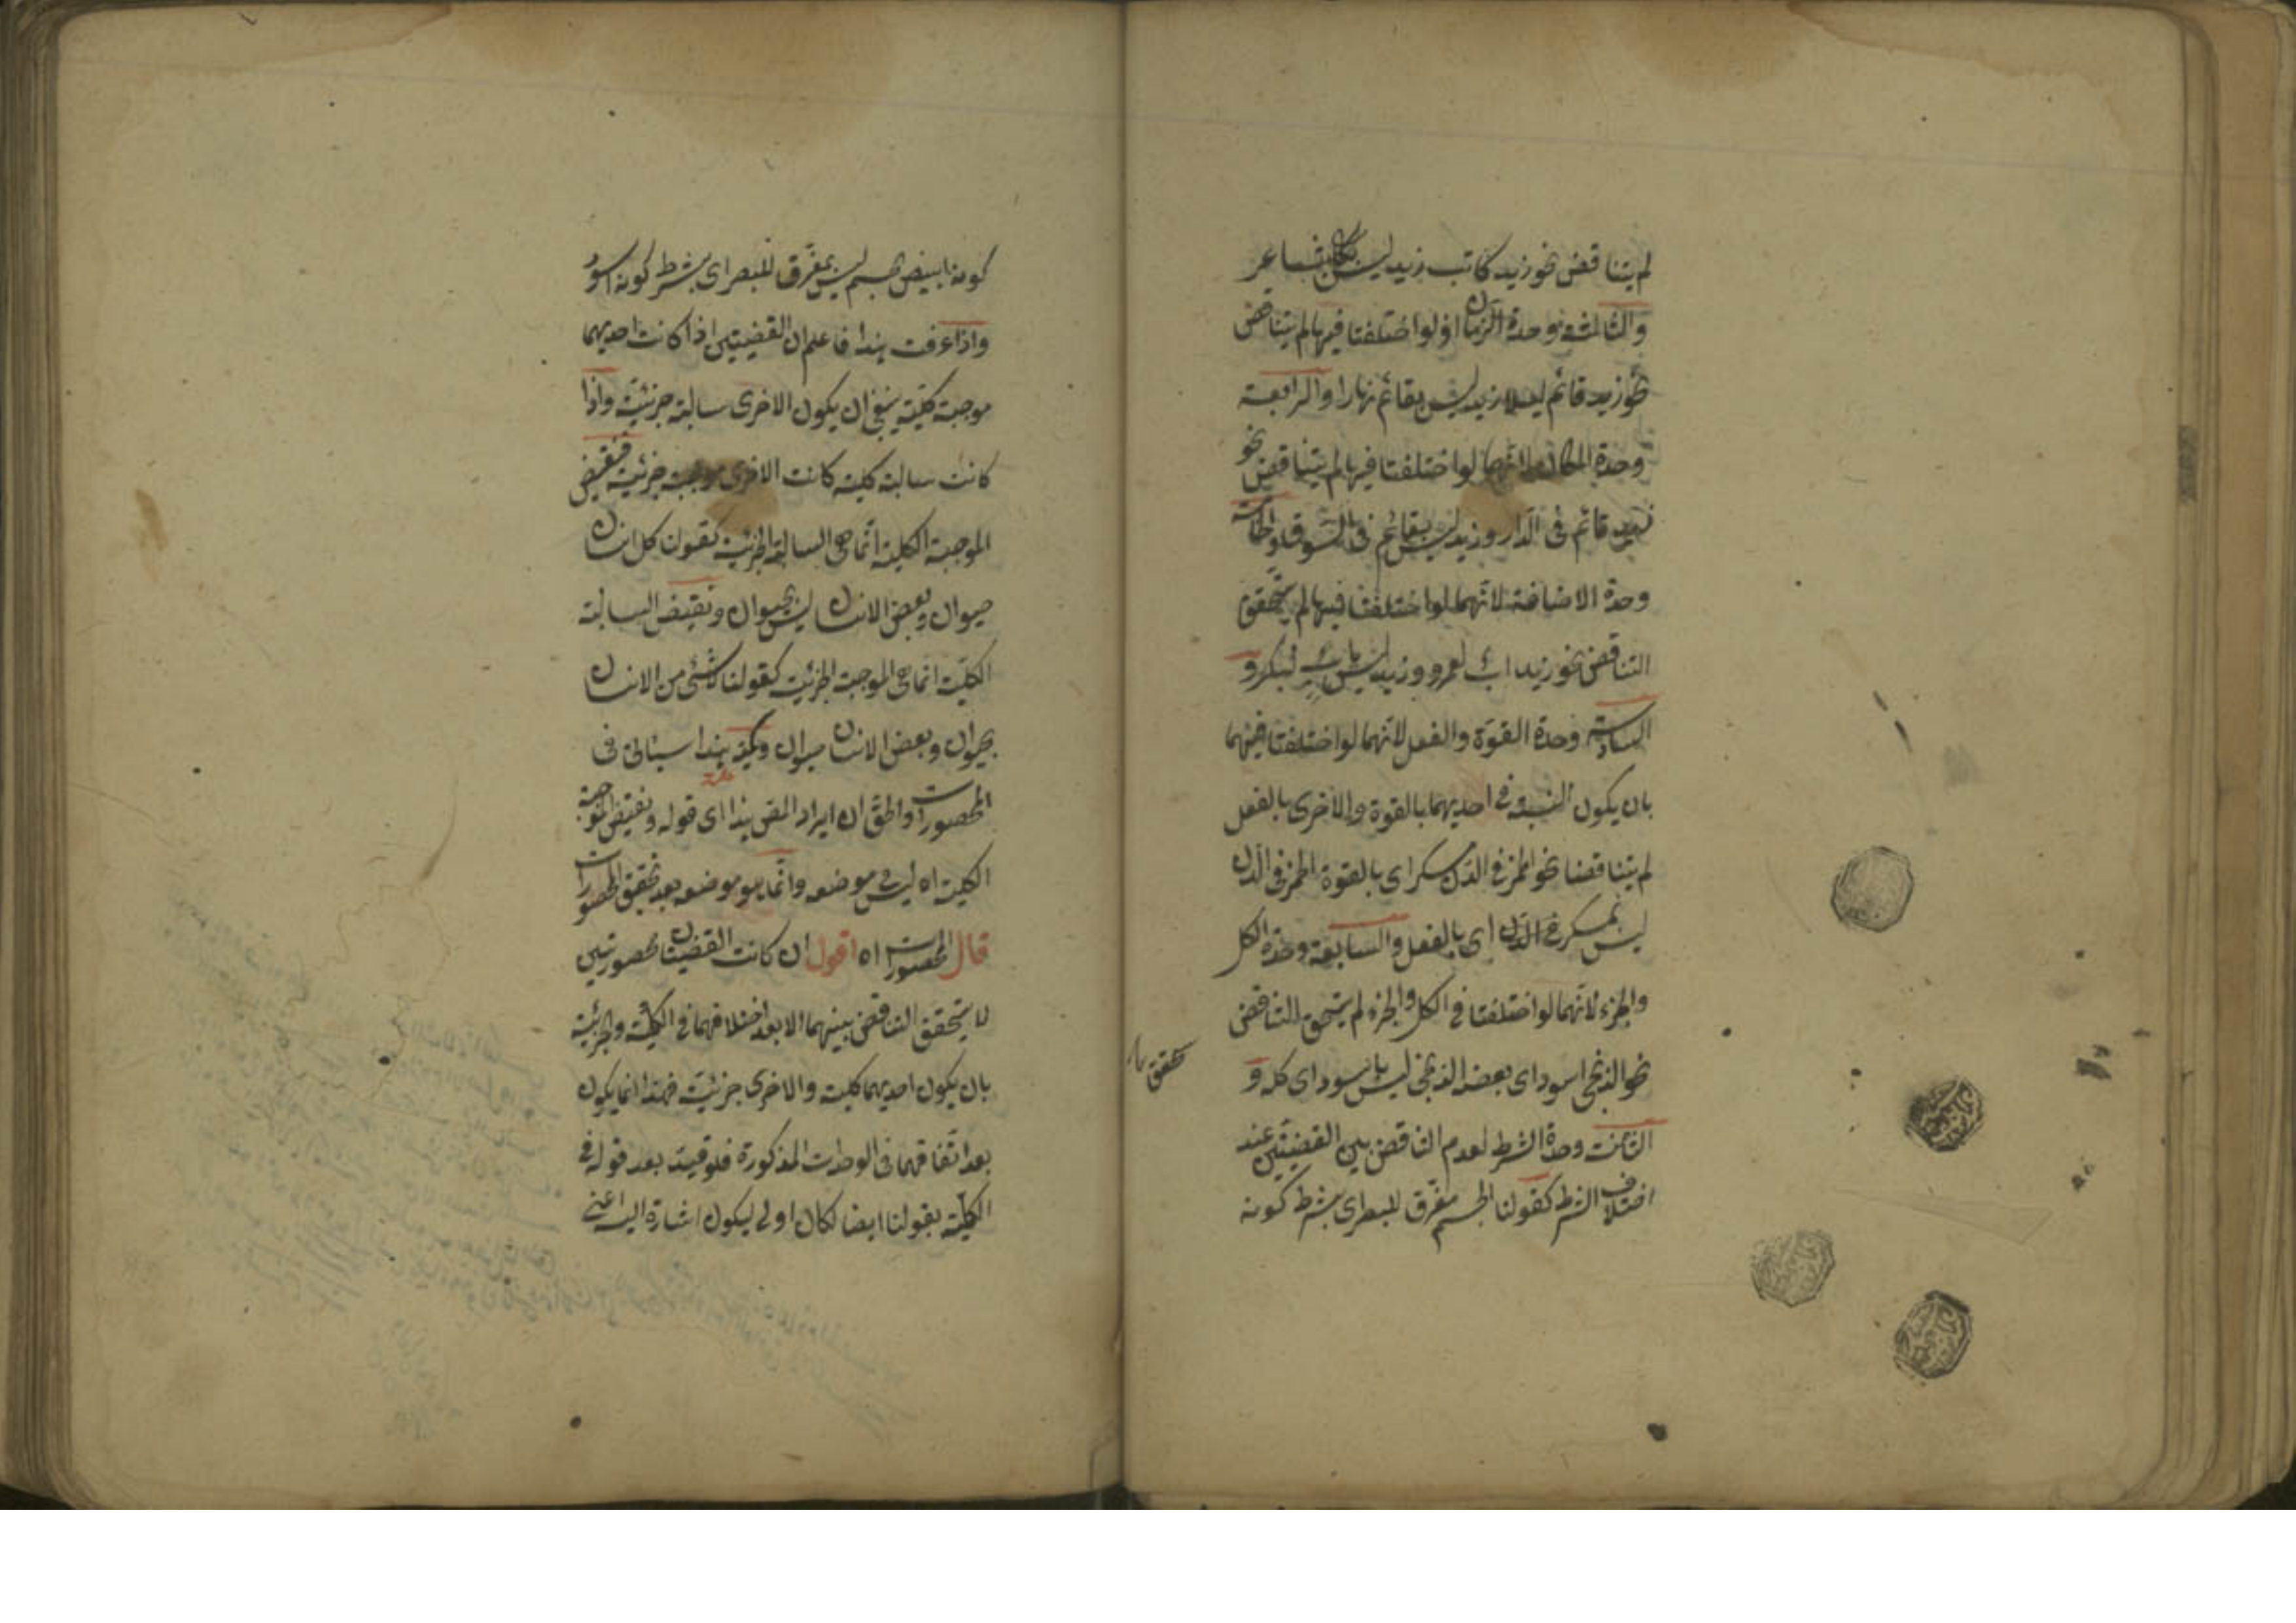 لم يتناقض نحو زيد كاتب زيد ليس بشاعر
والثالثة وحدة الزمان اذ لو اختلفتا فيها لم يتناقض
نحو زيد قائم ليلا زيد ليس بقائم نهارا والرابعة
وحدة المكان لانهما لو اختلفتا فيها لم يتناقض نحو
زيد قائم فى الدار وزيد ليس بقائم فى السوق والخامسة
وحدة الاضافة لانهما لو اختلفتا فيها لم يتحقق
التناقض نحو زيد اب لعمرو وزيد ليس باب لبكر و
السادسة وحدة القوة والفعل لانهما لو اختلفتا فيهما
بان يكون النسبة فى احديهما بالقوة والاخرى بالفعل
لم يتناقضا نحو الخمر فى الدن مسكر اى بالقوة الخمر فى الدن
ليس بمسكر فى الدن اى بالفعل والسابعة وحدة الكل
والجزء لانهما لو اختلفتا فى الكل والجزء لم يتحقق التناقض
نحو الزنجى اسود اى بعضه الزنجى ليس باسود اى كله و
الثامنة وحدة الشرط لعدم التناقض بين القضيتين عند
اختلاف الشرط كقولنا الجسم مفرق للبصر اى بشرط كونه
يتحقق
كونه ابيض الجسم ليس بمفرق للبصر اى بشرط كونه اسود
واذا عرفت هذا فاعلم ان القضيتين اذا كانت احديهما
موجبة كلية ينبغى ان يكون الاخرى سالبة جزئية واذا
كانت سالبة كلية كانت الاخرى موجبة جزئية فنقيض
الموجبة الكلية انما هى السالبة الجزئية كقولنا كل انسان
حيوان وبعض الانسان ليس بحيوان ونقيض السالبة
الكلية انما هى الموجبة الجزئية كقولنا لا شئ من الانسان
بحيوان وبعض الانسان حيوان وتحقيقه هذا سيأتى فى
المحصورات والحق ان ايراد المص هذا اى قوله ونقيض الموجبة
الكلية اه ليس فى موضعه وانما هو موضعه بعد تحقيق المحصورات
قال المحصورات اه اقول ان كانت القضيتان محصورتين
لا يتحقق التناقض بينهما الا بعد اختلافهما فى الكلية والجزئية
بان يكون احديهما كلية والاخرى جزئية فهذا انما يكون
بعد اتفاقهما فى الوحدات المذكورة فلو قيد بعد قوله فى
الكلية بقولنا ايضا لكان اولى ليكون اشارة اليه اعنى